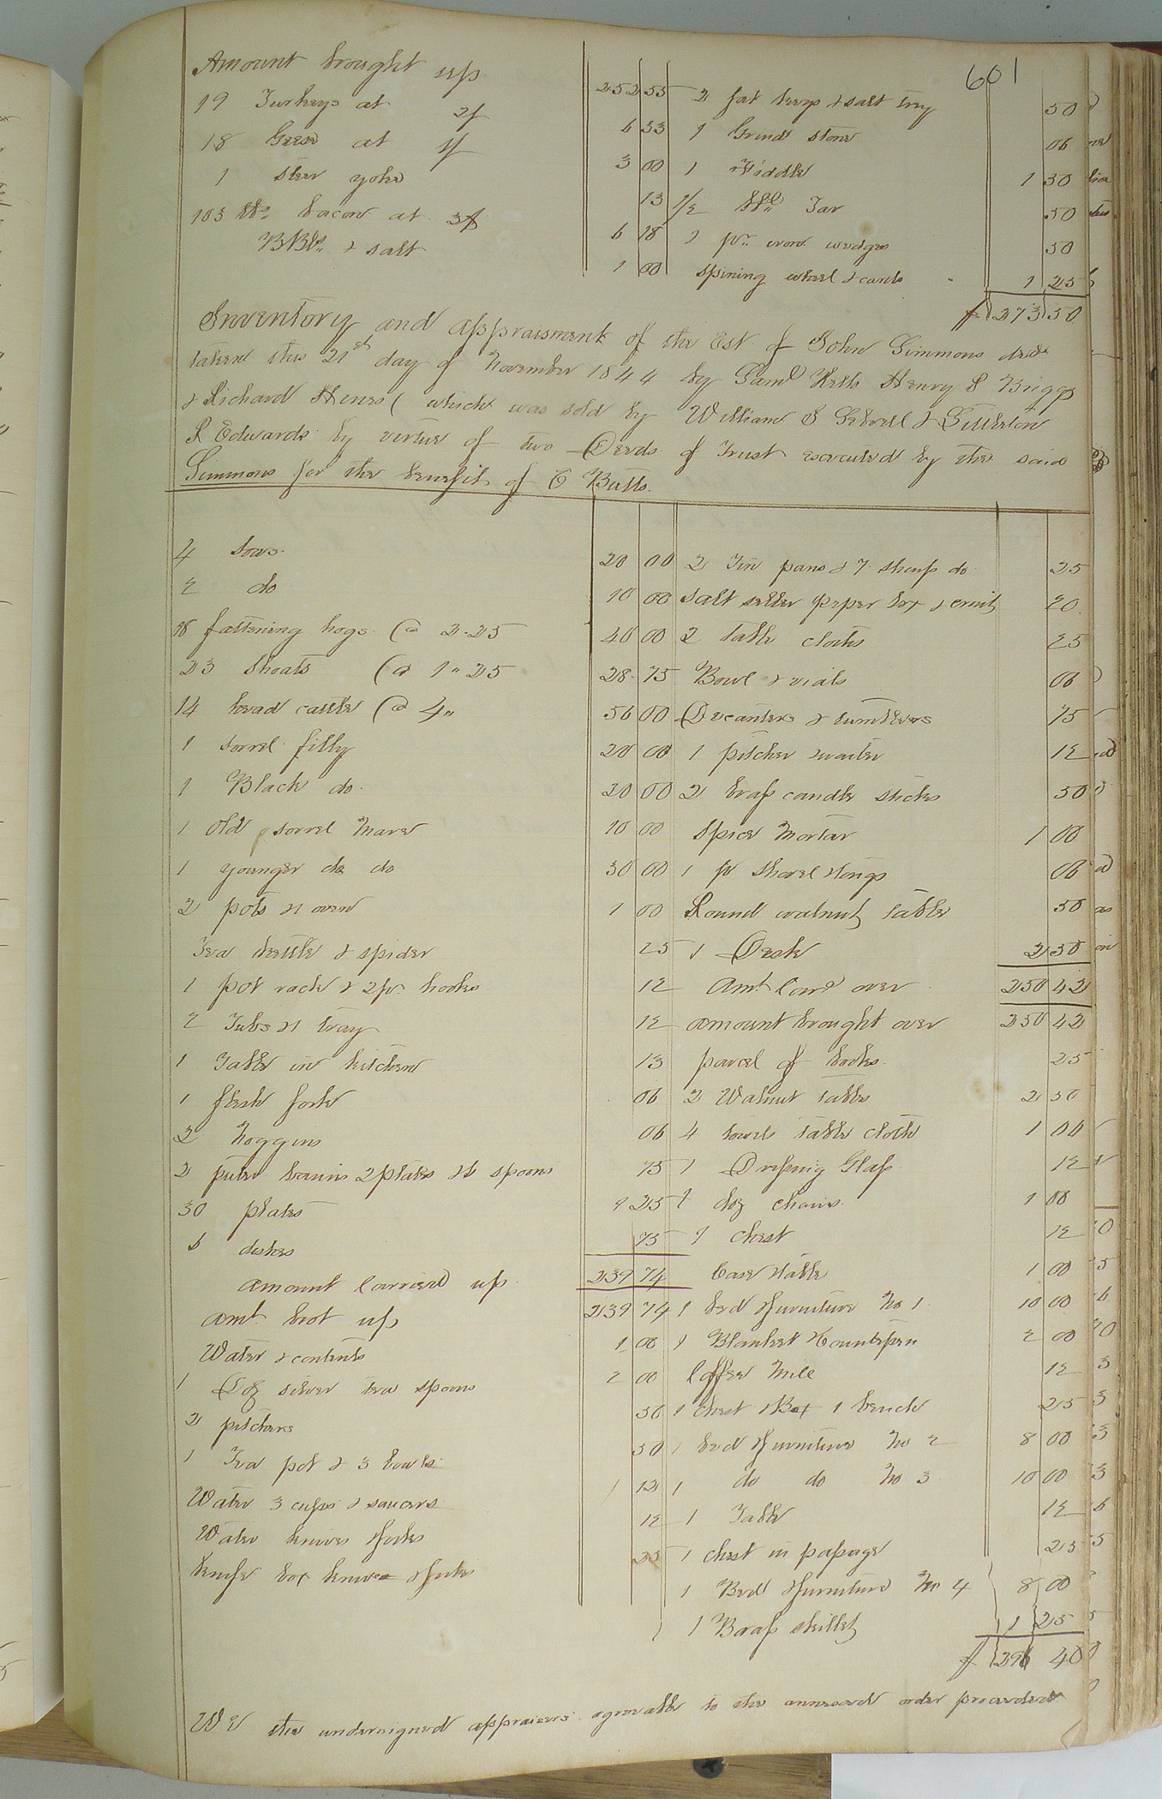 601
Amount brought up 252 55
19 Turkeys at 2/ 6 33
18 Geese at 1/ 3 00
1 steer yoke 13
103 lbs bacon at 6 18
BBls & salt 1 00
2 fat & salt tray 50
1 Grind stone 06
1 Fiddle 1 50
1/2 Tar 50
pr iron wedges 50
spining wheel & cards 1 25
$ 273 50
Inventory and appraisment of the Est of John Simmons decd
taken this 21st day of November 1844 by Saml Kello Henry S Briggs
& Richard Hines ( which was sold by William S &
R Edwards by virtue of two Deeds of Trust executed by the said
Simmons for the benefit of Batts.
4 Sows 20 00
2 do 10 00
18 fattening hogs @ 2.25 40 00
23 Shoats @ 1"25 28.75
14 head cattle @ 4" 56 00
1 sorrel filly 20 00
1 Black do. 20 00
1 old sorrel mare 10 00
1 younger do do 30 00
2 pots & 1 oven 1 00
Tea kettle & spider 25
1 pot rack & 2 pr hooks 12
2 Tubs & 1 tray 12
1 Table in kitchen 13
1 flesh fork 06
2 noggins 06
2 puter basins 2 plates & 6 spoons 75
30 plates 1 25
6 dishes 75
Amount Carried up 239 74
Amt brot up 239 74
Water & contents 1 00
1 Doz silver tea spoons 2 00
2 pitchers 50
1 Tea pot & 3 bowls 50
Water 3 cups & saucers 1 12
Water knives & forks 12
Knife box knives & forks 25
2 Tin pans & 7 sheep do 25
Salt seller peper box & cruit 20
2 table cloths 25
Bowl & vials 06
Decanters & tumblers 75
1 pitcher & waiter 12
2 brass candle sticks 50
Spice mortar 1 00
1 pr shovel & tongs 06
Round walnut table 50
1 Desk 2 50
Amt Card over 250 42
Amount brought over 250 42
parcel of books 25
2 Walnut tables 2 50
4 towels table cloth 1 00
1 Dressing Glass 12
1 doz chairs 1 00
1 Chest 12
Case & table 1 00
1 bed & furniture No 1 10 00
1 Blanket & Counterpen 2 00
Coffee mill 12
1 chest 1 Box 1 bench 25
1 bed & furniture No 2 8 00
1 do do No 3 10 00
1 Table 12
1 chest in passage 25
1 Bed & furniture No 4 8 00
1 Brass skillet 1 25
$ 296 40
We the undersigned appraisers agreeable to the annexed order proceeded